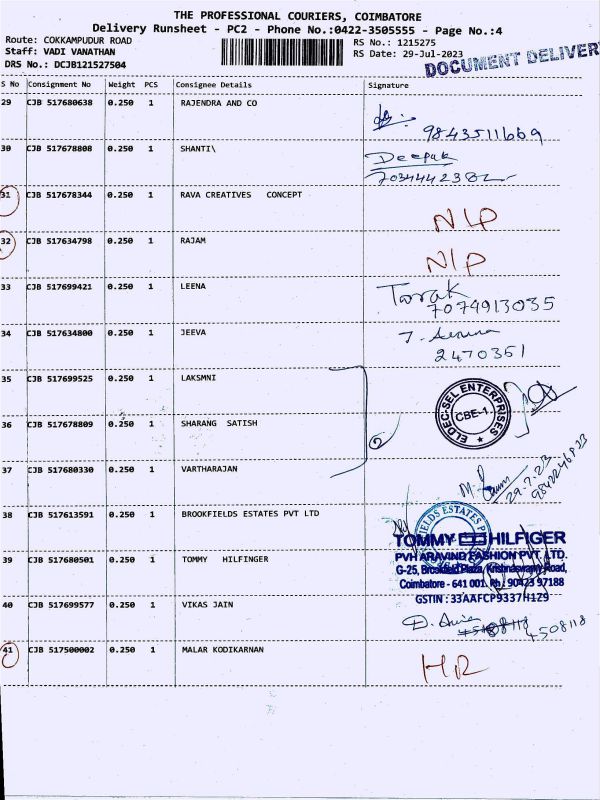 THE PROFESSIONAL COURIERS, COIMBATORE
Delivery Runsheet - PC2 - Phone No.:0422-3505555 - Page No.:4
Route: COKKAMPUDUR ROAD RS No.: 1215275
Staff: VADI VANATHAN RS Date: 29-Jul-2023
DRS No.: DCJB121527504 DOCUMENT DELIVER
S No Consignment No Weight PCS Consignee Details Signature
29 CJB 517680638 0.250 1 RAJENDRA AND CO
9843511669
30 CJB 517678808 0.250 1 SHANTI\ Deepak
7034442382
31 CJB 517678344 0.250 1 RAVA CREATIVES CONCEPT
N/P
32 CJB 517634798 0.250 1 RAJAM
N/P
33 CJB 517699421 0.250 1 LEENA Tarak
7074913035
34 CJB 517634800 0.250 1 JEEVA
2470351
35 CJB 517699525 0.250 1 LAKSMNI
ELDEC-SEL ENTERPRISES
CBE-1
36 CJB 517678809 0.250 1 SHARANG SATISH
37 CJB 517680330 0.250 1 VARTHARAJAN
29.7.23
38 CJB 517613591 0.250 1 BROOKFIELDS ESTATES PVT LTD
FIELDS ESTATES P
TOMMY HILFIGER
39 CJB 517680501 0.250 1 TOMMY HILFINGER PVH ARAVIND FASHION PVT. LTD.
G-25, Brookfield Plaza, Krishnaswamy Road,
Coimbatore - 641 001. Ph : 90423 97188
GSTIN : 33AAFCP9337H1Z9
40 CJB 517699577 0.250 1 VIKAS JAIN
4508118
41 CJB 517500002 0.250 1 MALAR KODIKARNAN
HR